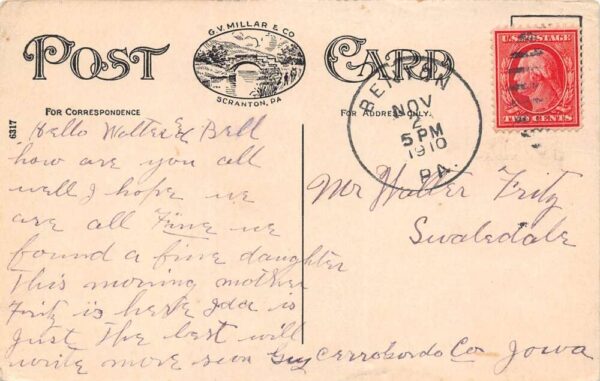 POST CARD
G.V. MILLAR & CO
SCRANTON, PA
FOR CORRESPONDENCE
FOR ADDRESS ONLY.
6317
U.S. POSTAGE
TWO CENTS
BENTON
NOV
2
5 PM
1910
PA.
Hello Walter & Bell
how are you all
well I hope we
are all Fine we
found a fine daughter
This morning mother
Fritz is here Ida is
Just The best will
write more soon Guy
Mr Walter Fritz
Swaledale
Cerrobordo Co Iowa